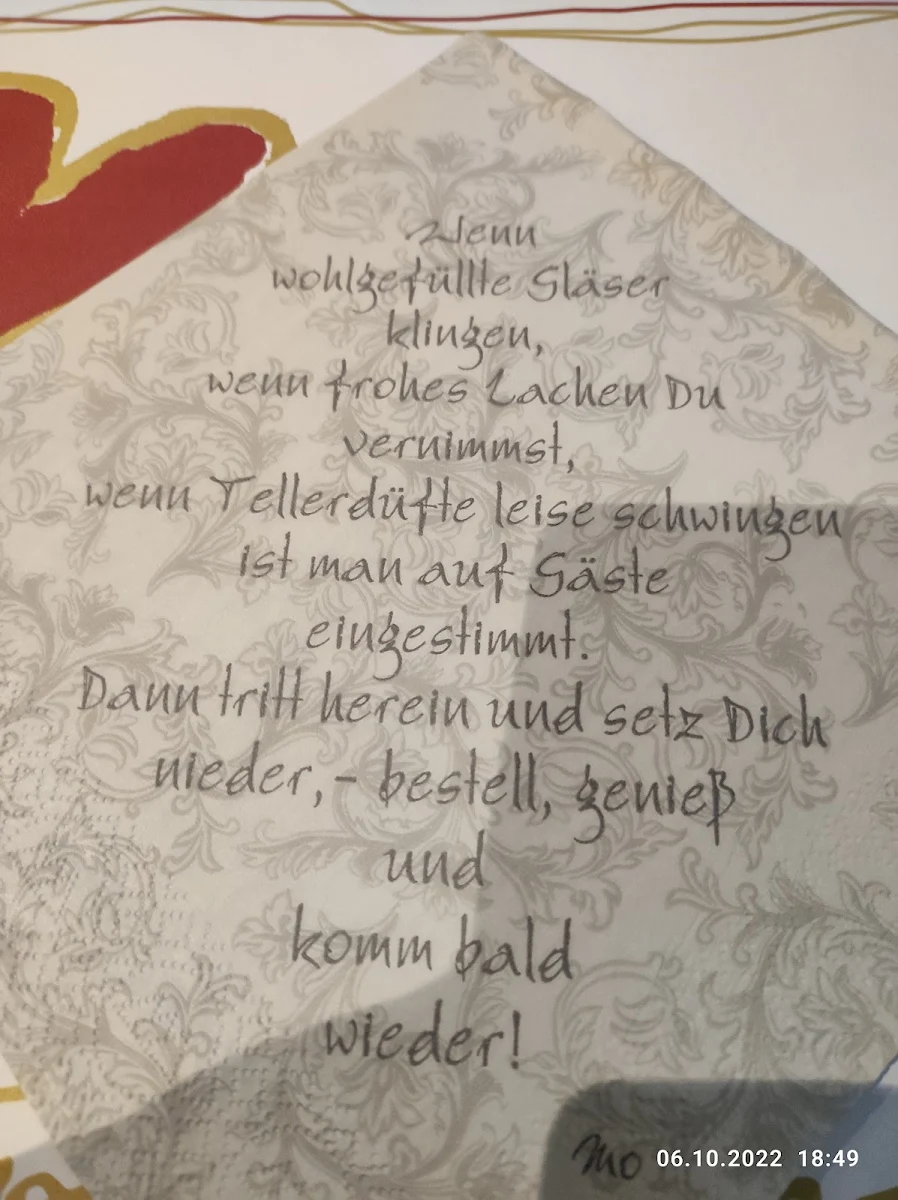 Wenn
wohlgefüllte Gläser
klingen,
wenn frohes Lachen Du
vernimmst,
wenn Tellerdüfte leise schwingen
ist man auf Gäste
eingestimmt.
Dann tritt herein und setz Dich
nieder,- bestell, genieß
und
komm bald
wieder!
Mo
06.10.2022 18:49